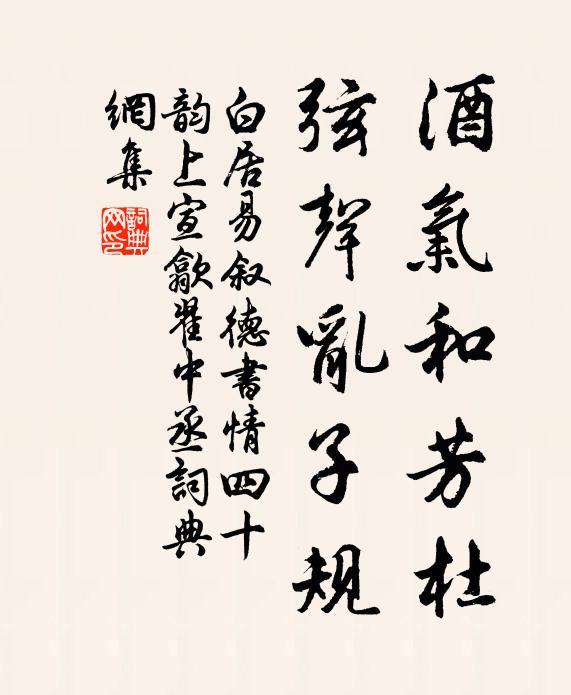 酒氣和芳杜
弦聲亂子規
白居易叙德書情四十
韵上宣歙翟中丞詞典
網集
詞典网印